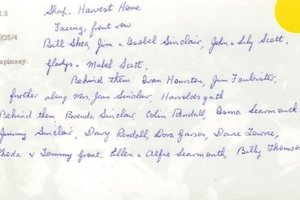 Shap. Harvest Home
Facing front row
Bill Shea, Jim & Isobel Sinclair, John & Lily Scott,
Gladys & Mabel Scott.
Behind them Evan Houston, Jim Foubister,
further along Mrs Jean Sinclair, Harroldsgath
Behind them Brenda Sinclair, Colin Rendall, Edna Learmonth
Jimmy Sinclair, Davy Rendall, Dora Garson, Dave Towrie,
Rhoda & Tommy Grant, Ellen & Alfie Learmonth, Billy Thomson
925/4
apinsay.